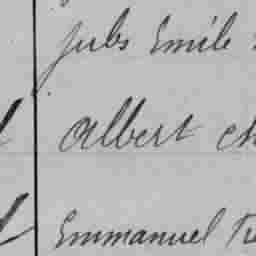 Jules Emile
Albert
Emmanuel